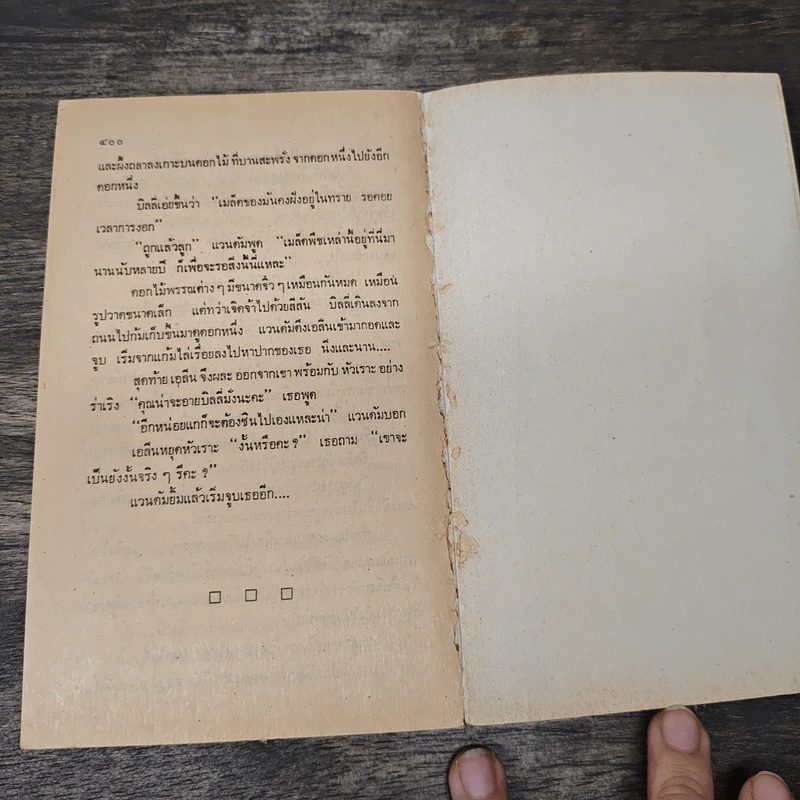 ๔๐๐
และผึ้งถลาลงเกาะบนดอกไม้ ที่บานสะพรั่ง จากดอกหนึ่งไปยังอีก
ดอกหนึ่ง
บิลลี่เอ่ยขึ้นว่า “เมล็ดของมันคงฝังอยู่ในทราย รอคอย
เวลาการงอก”
“ถูกแล้วลูก” แวนดัมพูด “เมล็ดพืชเหล่านี้อยู่ที่นี่มา
นานนับหลายปี ก็เพื่อจะรอสิ่งนี้นี่แหละ”
ดอกไม้พรรณต่าง ๆ มีขนาดจิ๋ว ๆ เหมือนกันหมด เหมือน
รูปวาดขนาดเล็ก แต่ทว่าเจิดจ้าไปด้วยสีสัน บิลลี่เดินลงจาก
ถนนไปก้มเก็บขึ้นมาดูดอกหนึ่ง แวนดัมดึงเอลีนเข้ามากอดและ
จูบ เริ่มจากแก้มไล่เรื่อยลงไปหาปากของเธอ นิ่งและนาน....
สุดท้าย เอลีน จึงผละ ออกจากเขา พร้อมกับ หัวเราะ อย่าง
ร่าเริง “คุณน่าจะอายบิลลี่มั่งนะคะ” เธอพูด
“อีกหน่อยแกก็จะต้องชินไปเองแหละน่า” แวนดัมบอก
เอลีนหยุดหัวเราะ “งั้นหรือคะ ?” เธอถาม “เขาจะ
เป็นยังงั้นจริง ๆ รึคะ ?”
แวนดัมยิ้มแล้วเริ่มจูบเธออีก....